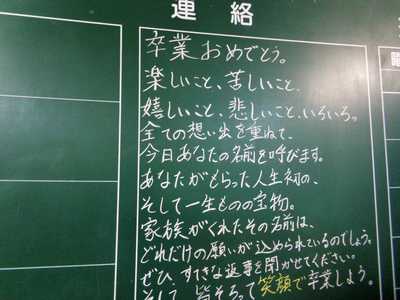 連絡
卒業おめでとう。
楽しいこと、苦しいこと、
嬉しいこと、悲しいこと、いろいろ。
全ての想い出を重ねて、
今日あなたの名前を呼びます。
あなたがもらった人生初の、
そして一生ものの宝物。
家族がくれたその名前は、
どれだけの願いが込められているのでしょう。
ぜひ、すてきな返事を聞かせてください。
そして、皆そろって笑顔で卒業しよう。